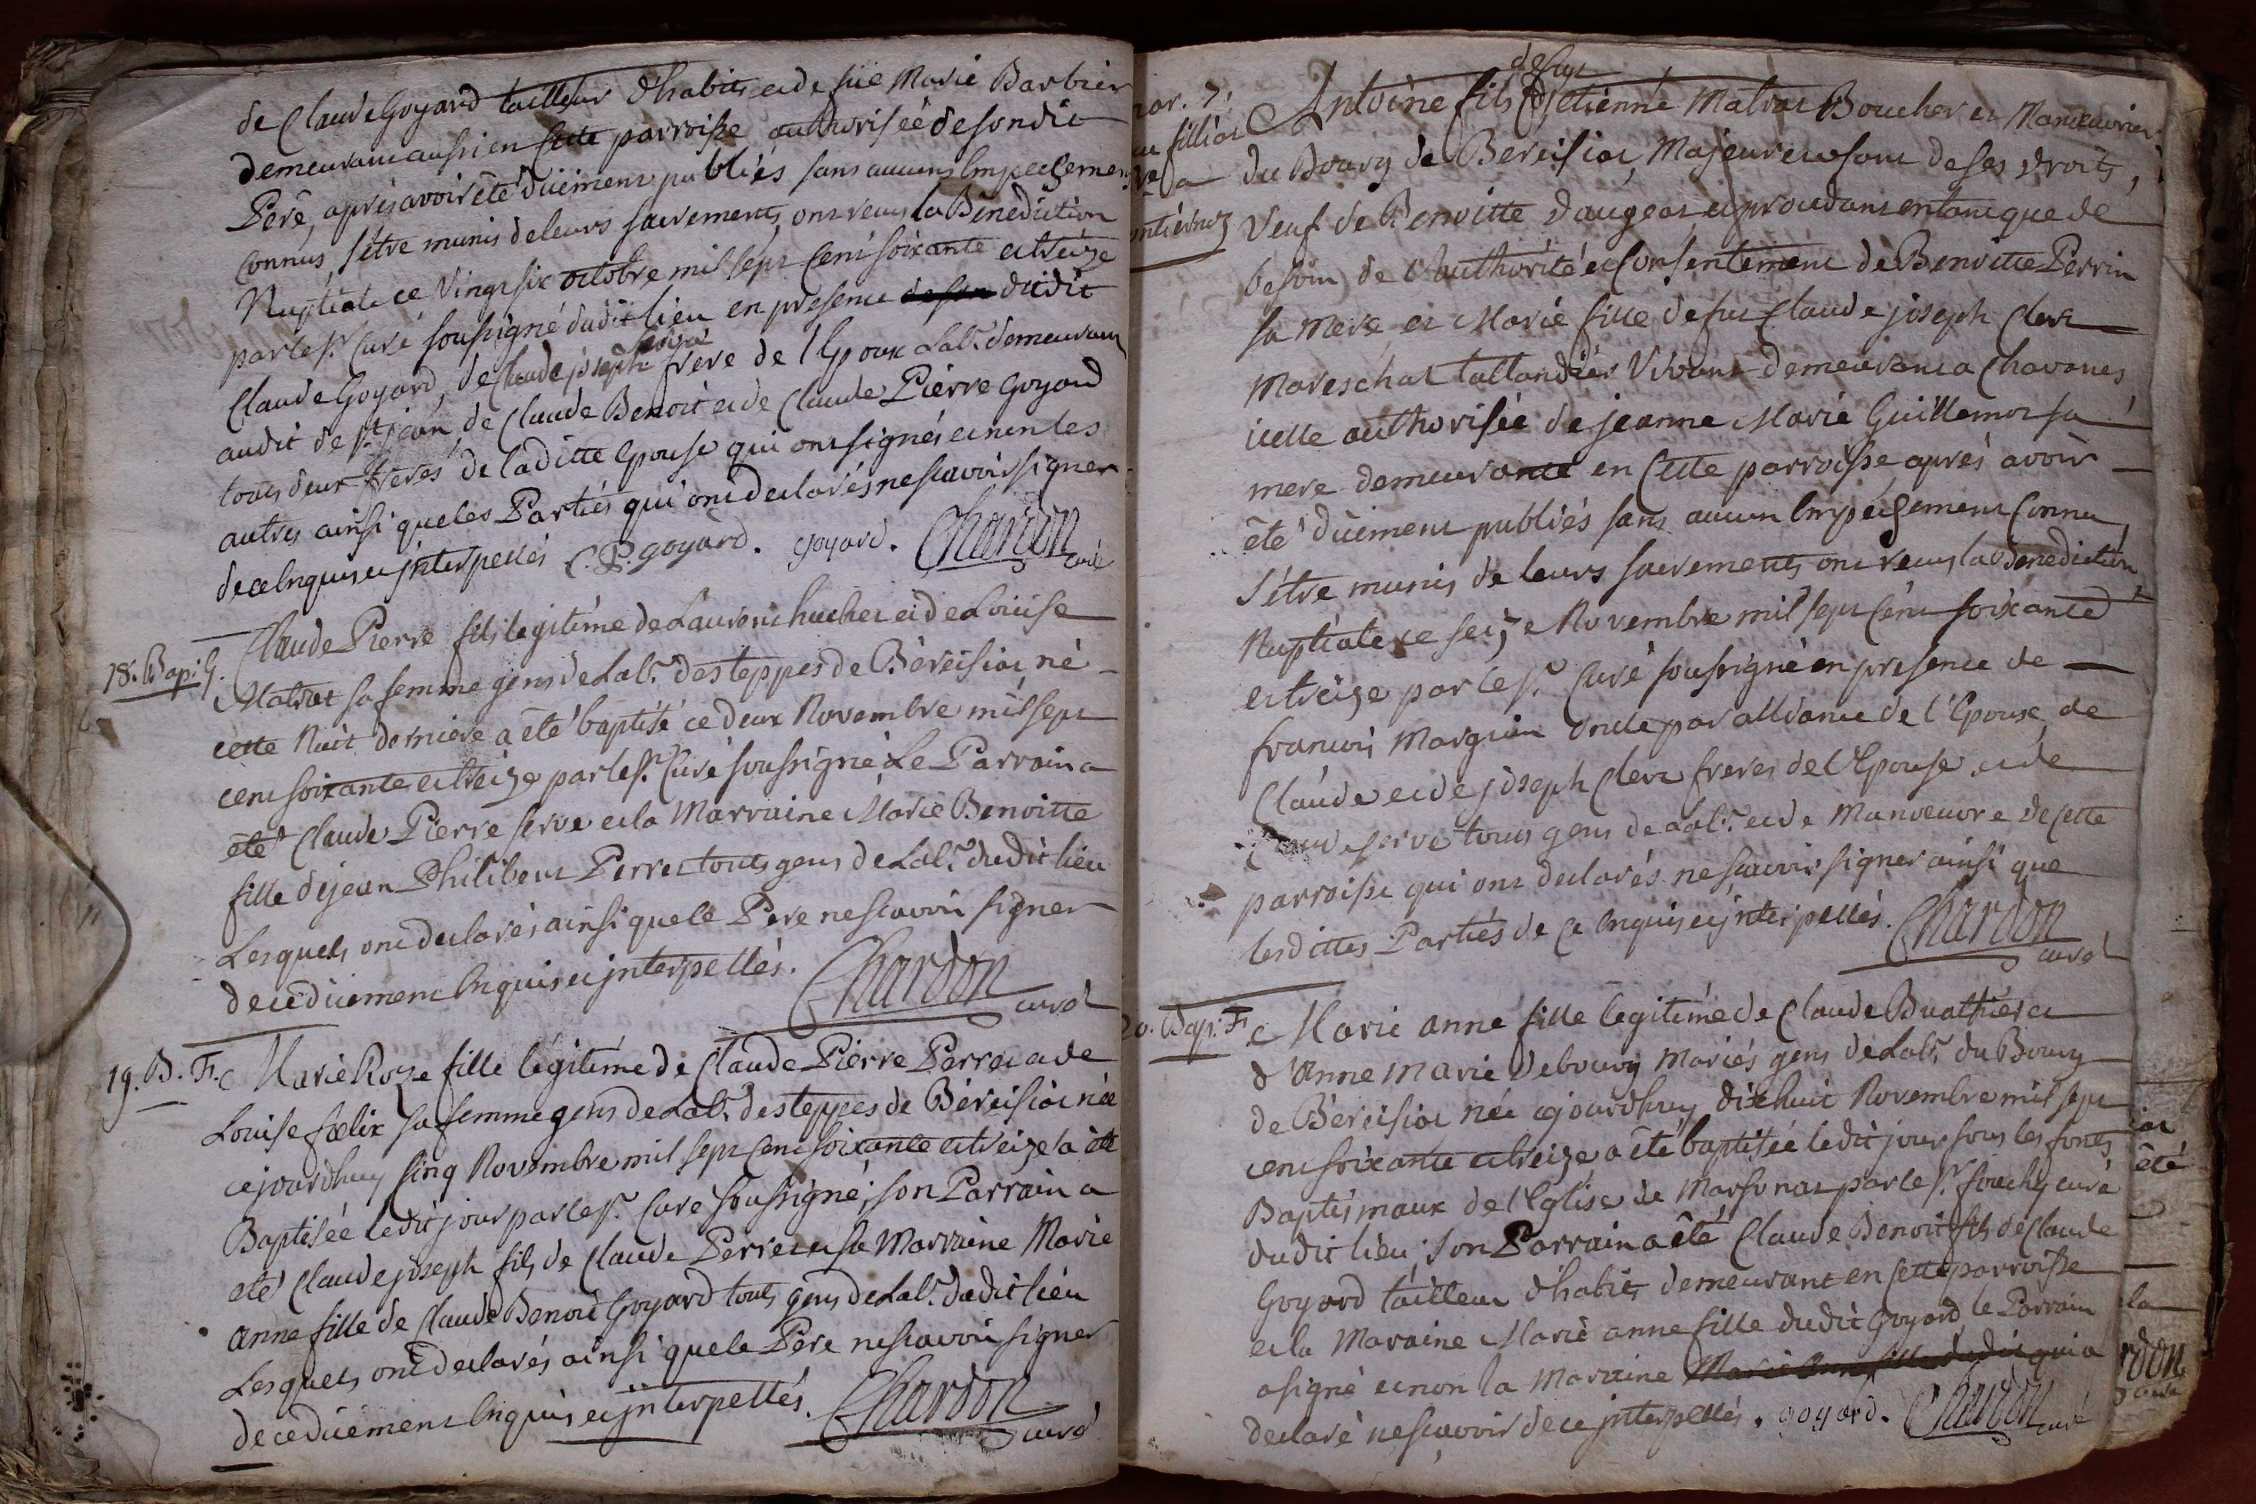 de Claude Goyard tailleur d'habits et de füe Marie Barbier
demeurant aussi en cette parroisse authorisée de son dit
Pere, après avoir été düement publiés sans aucuns Impechement
connus, s'être munis de leurs sacrements, ont reçus la Bénédiction
Nuptiale ce vingt six octobre mil sept cent soixante et treize
par le sr. Curé soussigné dudit lieu en presence dudit
Claude Goyard, de Claude joseph frere de l'Epoux Labr. demeurant
audit de st. jean, de Claude Benoit et de Claude Pierre Goyard
tous deux freres de laditte Epouse qui ont signés et non les
autres ainsi que les Parties qui ont declarés ne scavoir signer
de ce Enquis et jnterpellés C. P. goyard. goyard. Chardon curé
18. Bap. G. Claude Pierre fils legitime de Laurent huchet et de Louise
Matrat sa femme gens de Labr. des teppes de Béréisiat né
cette Nuit derniere a été baptisé ce deux Novembre mil sept
cent soixante et treize par le sr. Curé soussigné Le Parrain a
été Claude Pierre serve et la Marraine Marie Benoitte
fille de jean Philibert Perret touts gens de Labr. dudit lieu
Lesquels ont declarés ainsi que le Pere ne scavoir signer
de ce düement Enquis et jnterpellés. Chardon curé
19. B. F. Marie Roze fille légitime de Claude Pierre Perret et de
Louise fœlix sa femme gens de Labr. des teppes de Béréisiat née
cejourdhuy sinq Novembre mil sept cent soixante et treize a été
Baptisée ledit jour par le sr. Curé soussigné; son Parrain a
été Claude joseph fils de Claude Perret et sa Marraine Marie
anne fille de Claude Benoit Goyard touts gens de Labr. dudit lieu
Lesquels ont declarés ainsi que le Pere ne scavoir signer
de ce düement Enquis et jnterpellés. Chardon curé
mar. 7. Antoine fils defut d'etienne Matrat Boucher et Manœuvrier
du Bourg de Bereisiat, Majeur et usant de ses droits,
veuf de Benoitte daugeat et procedant en tant que de
besoin de l'authorité et Consentement de Benoitte Perrin
sa mere, et Marie fille de fut Claude joseph Clerc
Mareschat tallandier vivant demeurant a Chavanes
icelle authorisée de jeanne Marie Guillemot sa
mere demeurante en cette parroisse, aprés avoir
été düement publiés sans aucun Impechement connu,
s'être munis de leurs sacrements ont reçus la Benediction
Nuptiale ce seize Novembre mil sept cent soixante
et treize par le sr. Curé soussigné en presence de
francois Marguin oncle par alliance de l'Epoux, de
Claude et de joseph Clerc freres de l'Epouse et de
serve tous gens de Labr. et de Manœuvre de cette
parroisse qui ont declarés ne scavoir signer ainsi que
lesdittes Parties de ce Enquis et jnterpellés. Chardon curé
20. Bap. F. Marie anne fille legitime de Claude Buathier et
d'Anne Marie Debourg Mariés gens de Labr. du Bourg
de Béréisiat née cejourdhuy dixhuit Novembre mil sept
cent soixante et treize a été baptisée ledit jour sous les fonts
Baptismaux de l'Eglise de Marsonat par le sr. curé
dudit lieu; son Parrain a été Claude Benoit fils de Claude
Goyard tailleur d'habits demeurant en cette parroisse
et la Maraine Marie anne fille dudit Goyard, le Parrain
a signé et non la Maraine qui a
declaré ne scavoir de ce jnterpellés. goyard. Chardon curé